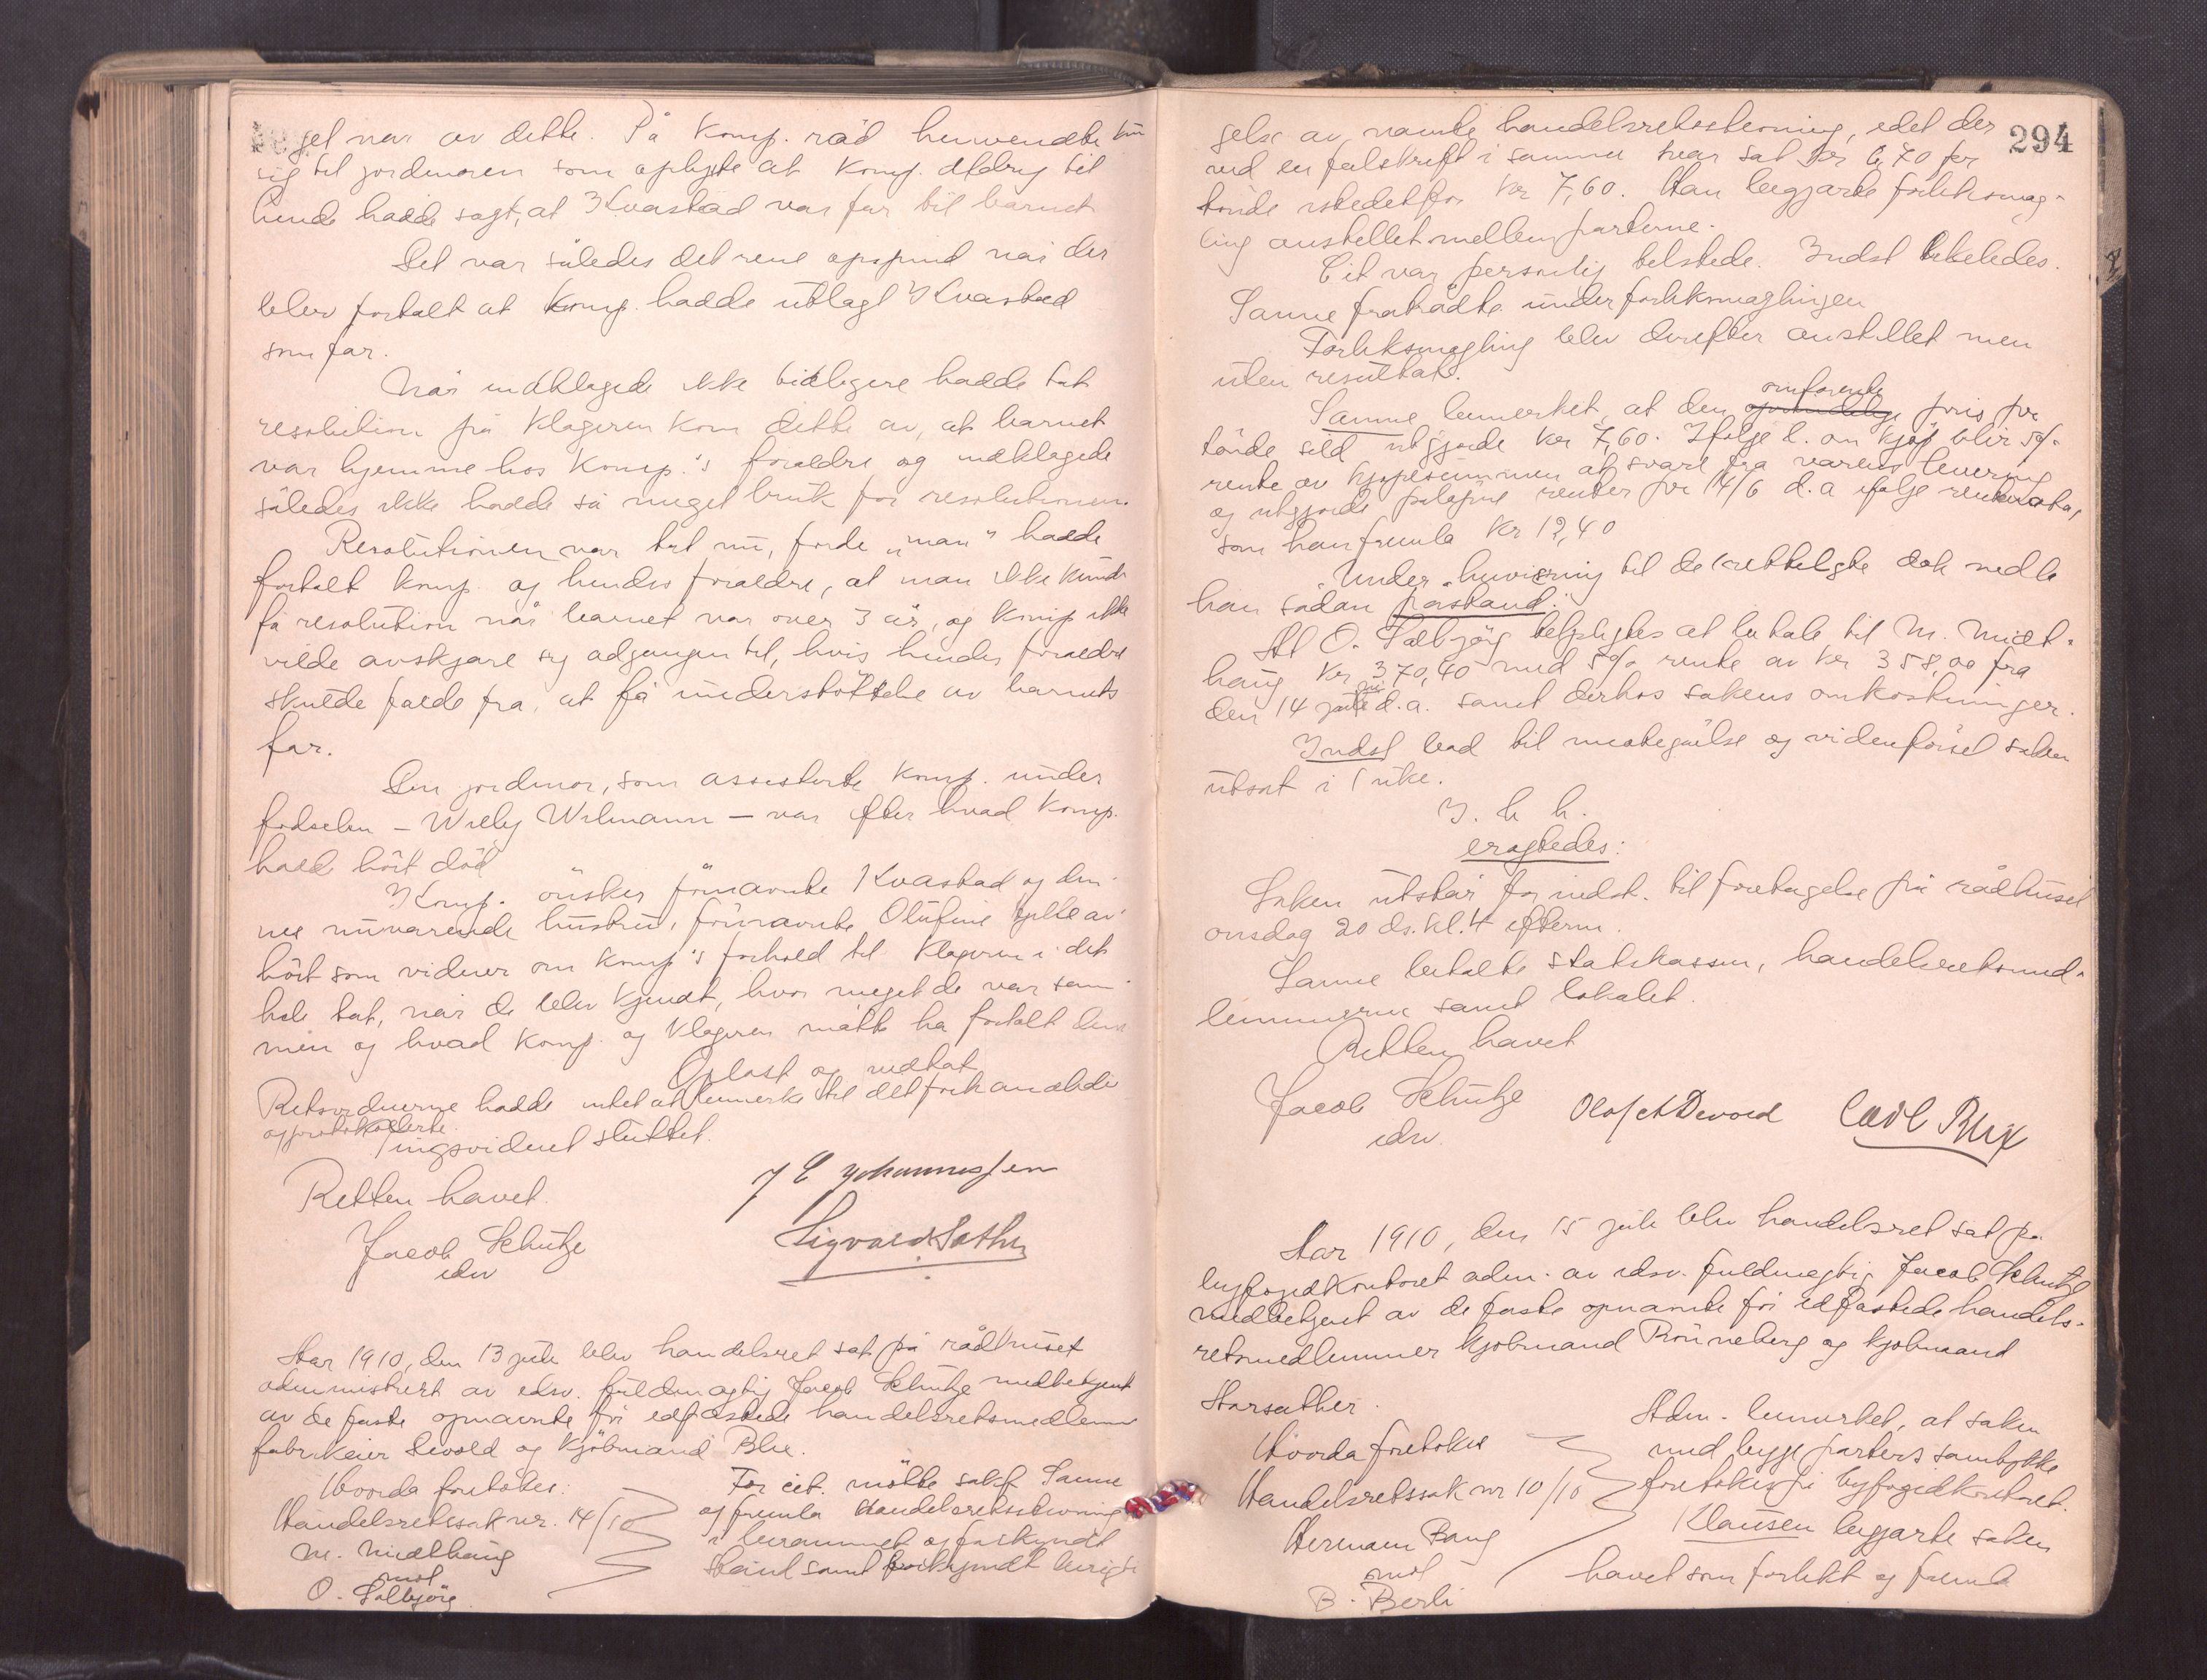 get var av dette. På komp. råd henvendte hun
sig til jordmoren som oplyste at komp. aldrig til
hende hadde sagt, at Kvastad var far til barnet
Det var således det rene opspind når der
blev fortalt at komp. hadde utlagt Kvastad
som far.
Når indklagede ikke tidligere hadde tat
resolution på klageren kom dette av, at barnet
var hjemme hos komp.'s forældre og indklagede
således ikke hadde så meget bruk for resolutionen.
Resolutionen var tat nu, fordi „man" hadde
fortalt komp. og hendes forældre, at man ikke kunde
få resolution når barnet var over 3 år, og komp ikke
vilde avskjære sig adgangen til, hvis hendes forældre
skulde falde fra, at få understøttelse av barnets
far.
Den jordmor, som assisterte komp. under
fødselen – Willy Wilmann – var efter hvad komp.
hadd hørt død
Komp. ønsker førnævnte Kvastad og den-
nes nuværende hustru, førnævnte Olufine av-
hørt som vidner om komp's forhold til klageren i det
hele tat, når de blev kjendt, hvor meget de var sam-
men og hvad komp. og klageren måtte ha fortalt dem
Oplæst og vedtat
Retsvidnerne hadde intet at bemerke til det forhandlede
og protokollerte.
Tingsvidnet sluttet.
Retten hævet.
J E Johannessen
Jacob Schutze
edsv
Sigvald Sæther
Aar 1910, den 13 juli blev handelsret sat på rådhuset
administrert av edsv. fuldmægtig Jacob Schutze medbetjent
av de faste opnævnte før edfæstede handelsretsmedlemmer
fabrikeier Devold og kjøbmand Blix.
Hvorda foretokes:
Handelsretssak nr. 14/10
M. Midthaug
mot
O. Solbjørg
For cit. møtte sakf. Sanne
og fremla handelsretsstevning
i berammet og forkyndt
stand samt forkyndt berigti-
294
gelse av nævnte handelsretsstevning, idet der
ved en feilskrift i samme var sat kr 6,70 per
tønde istedetfor kr 7,60. Han begjærte forliksmæg-
ling anstillet mellem parterne.
Cit var personlig tilstede. Indst likeledes.
Sanne fratrådte under forliksmæglingen
Forliksmægling blev derefter anstillet men
uten resultat.
omforente
Sanne bemerket, at den pris pr
tønde sild utgjorde kr 7,60. Ifølge l. om kjøp blir 5%
rente av kjøpesummen at svare fra varens levering
og utgjorde påløpne renter pr 14/6 d.a ifølge rentenota,
som han fremla kr 12,40
Under henvisning til de irettelagte dok nedla
han sådan påstand:
At O. Solbjørg tilpligtes at betale til M. Midt-
haug kr 370,40 med 5% rente av kr 358,00 fra
den 14 juni d.a. samt derhos sakens omkostninger.
Indst bad til imøtegåelse og vidneførsel saken
utsat i 1 uke.
eragtedes:
Saken utstår for indst. til foretagelse på rådhuset
onsdag 20 ds. kl. 4 efterm.
Sanne betalte statskassen, handelsretsmed-
lemmerne samt lokalet.
Retten hævet
Jacob Schutze
edsv.
Olaf A Devold
Carl Blix
Aar 1910, den 15 juli blev handelsret sat på
byfogdkontoret adm. av edsv. fuldmægtig Jacob Schutze
medbetjent av de faste opnævnte før edfæstede handels-
retsmedlemmer kjøbmand Rønneberg og kjøbmand
Størsæther.
Hvorda foretokes
Handelsretssak nr 10/10
Herman Bang
mot
B. Berli
Adm. bemerket, at saken
med begge parters samtykke
foretokes på byfogedkontoret.
Klausen begjærte saken
hævet som forlikt og fremla